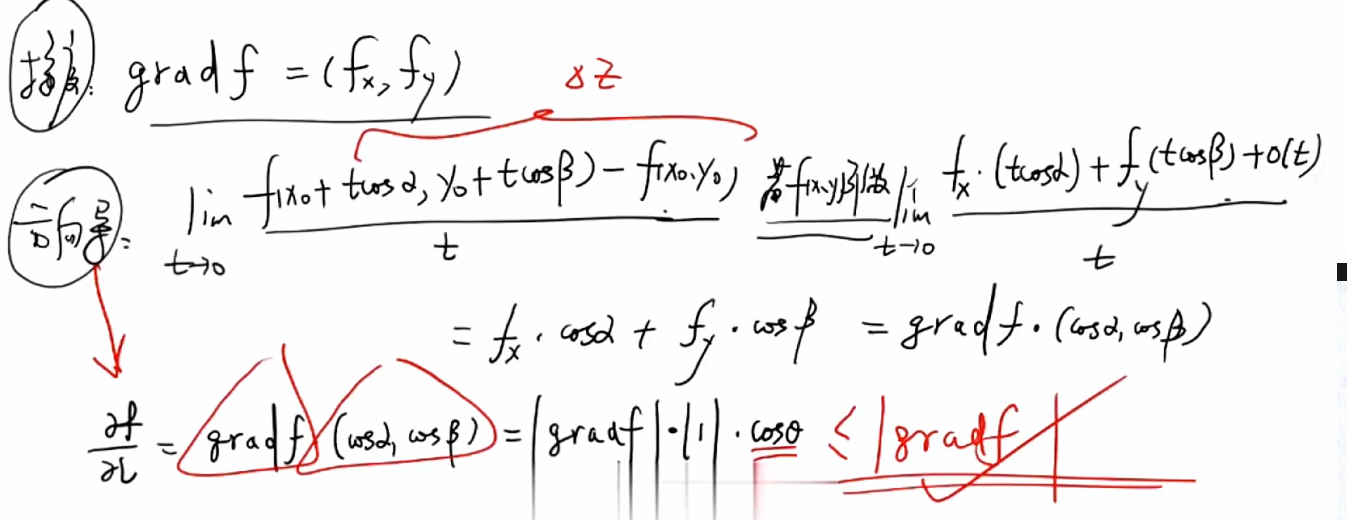 梯度: grad f = (fx, fy)
Δz
方向导: lim t→0 f(x0 + tcosα, y0 + tcosβ) − f(x0, y0) / t 若f(x,y)可微 lim t→0 fx·(tcosα) + fy(tcosβ) + o(t) / t
= fx · cosα + fy · cosβ = grad f · (cosα, cosβ)
∂f/∂l = grad f (cosα, cosβ) = |grad f| · |1| · cosθ ≤ |grad f|